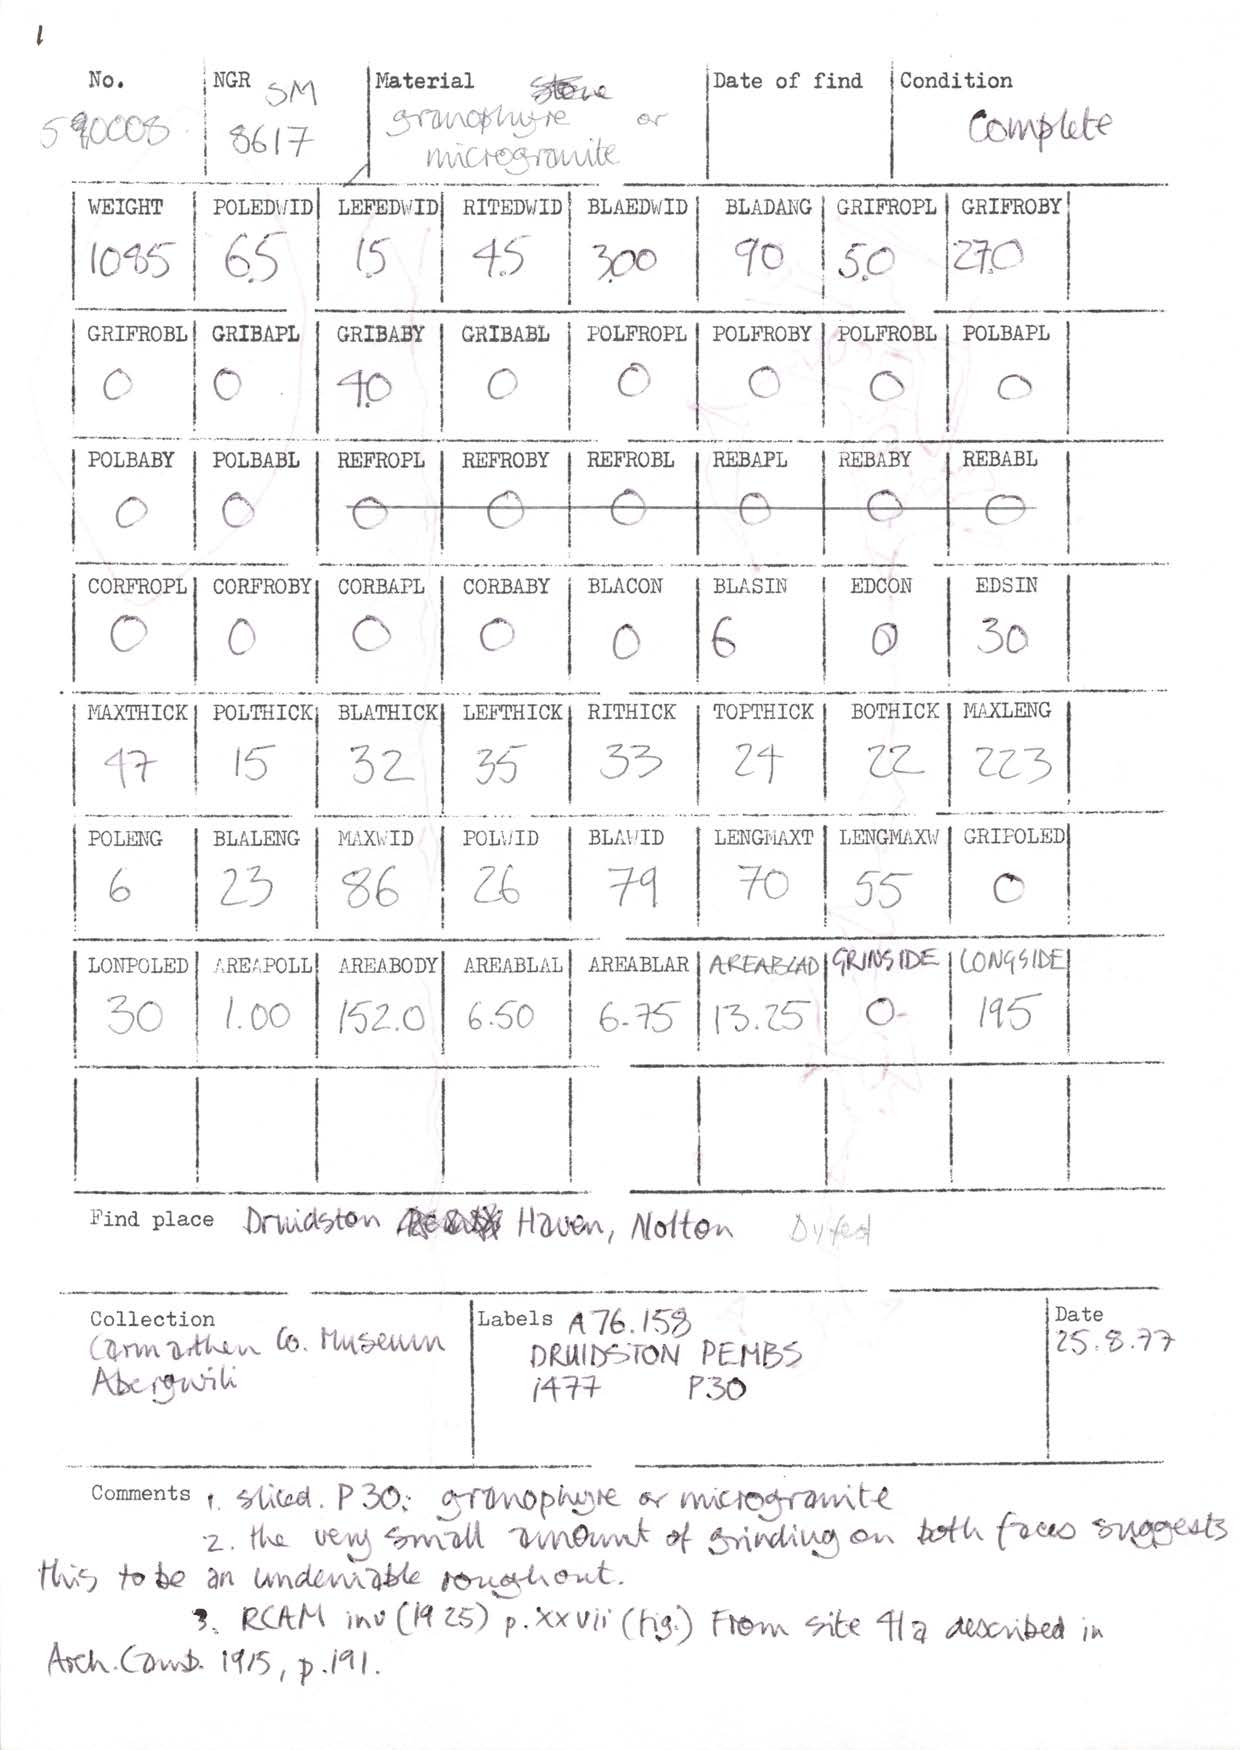 1
No. NGR SM Material Date of find Condition
590008 8617 granophyre or Complete
microgranite
WEIGHT POLEDWID LEFEDWID RITEDWID BLAEDWID BLADANG GRIFROPL GRIFROBY
1085 6.5 1.5 4.5 3.00 90 5.0 27.0
GRIFROBL GRIBAPL GRIBABY GRIBABL POLFROPL POLFROBY POLFROBL POLBAPL
0 0 4.0 0 0 0 0 0
POLBABY POLBABL REFROPL REFROBY REFROBL REBAPL REBABY REBABL
0 0 0 0 0 0 0 0
CORFROPL CORFROBY CORBAPL CORBABY BLACON BLASIN EDCON EDSIN
0 0 0 0 0 6 0 30
MAXTHICK POLTHICK BLATHICK LEFTHICK RITHICK TOPTHICK BOTHICK MAXLENG
47 15 32 35 33 24 22 223
POLENG BLALENG MAXWID POLWID BLAWID LENGMAXT LENGMAXW GRIPOLED
6 23 86 26 79 70 55 0
LONPOLED AREAPOLL AREABODY AREABLAL AREABLAR AREABLAD GRINSIDE LONGSIDE
30 1.00 152.0 6.50 6.75 13.25 0 195
Find place Druidston Haven, Nolton Dyfed
Collection Labels A76.158 Date
Carmarthen Co. Museum DRUIDSTON PEMBS 25.8.77
Abergwili 1477 P30
Comments 1. sliced. P30: granophyre or microgranite
2. the very small amount of grinding on both faces suggests
this to be an undeniable roughout.
3. RCAM inv (1925) p.xxvii (fig.) From site 41a described in
Arch. Camb. 1915, p.191.